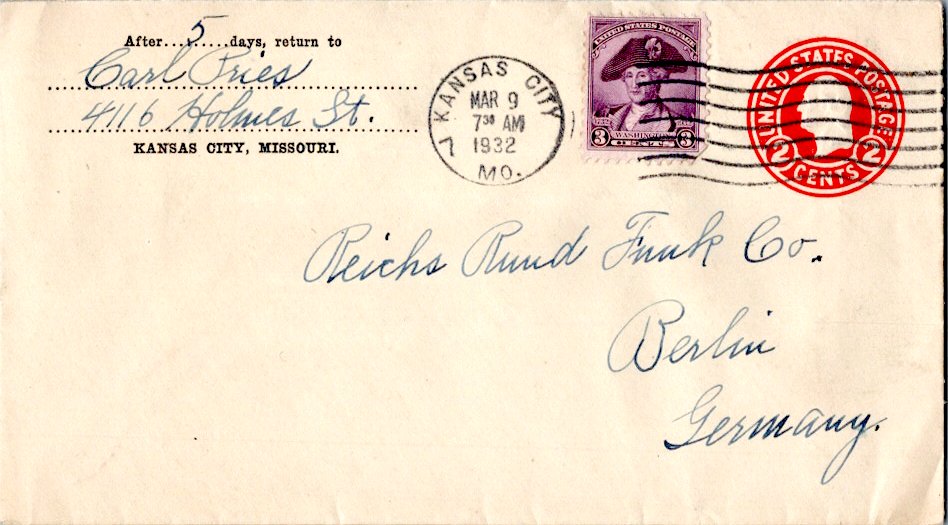 After....5.....days, return to
Carl Fries
4116 Holmes St.
KANSAS CITY, MISSOURI.
KANSAS CITY
MAR 9
7³⁰ AM
1932
MO.
UNITED STATES POSTAGE
1732
WASHINGTON
3 CENTS 3
UNITED STATES POSTAGE
2 CENTS 2
Reichs Rund Funk Co.
Berlin
Germany.